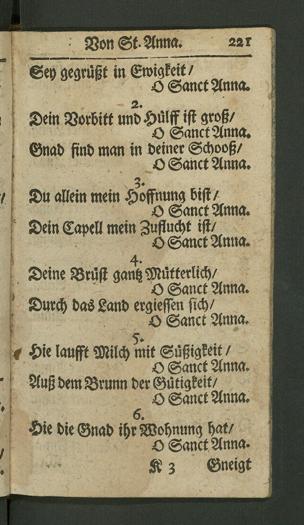 Von St. Anna. 221
Sey gegrüßt in Ewigkeit /
O Sanct Anna.
2.
Dein Vorbitt und Hülff ist groß /
O Sanct Anna.
Gnad find man in deiner Schooß /
O Sanct Anna.
3.
Du allein mein Hoffnung bist /
O Sanct Anna.
Dein Capell mein Zuflucht ist /
O Sanct Anna.
4.
Deine Brüst gantz Mütterlich /
O Sanct Anna.
Durch das Land ergiessen sich /
O Sanct Anna.
5.
Hie laufft Milch mit Süßigkeit /
O Sanct Anna.
Auß dem Brunn der Gütigkeit /
O Sanct Anna.
6.
Hie die Gnad ihr Wohnung hat /
O Sanct Anna.
K 3 Gneigt